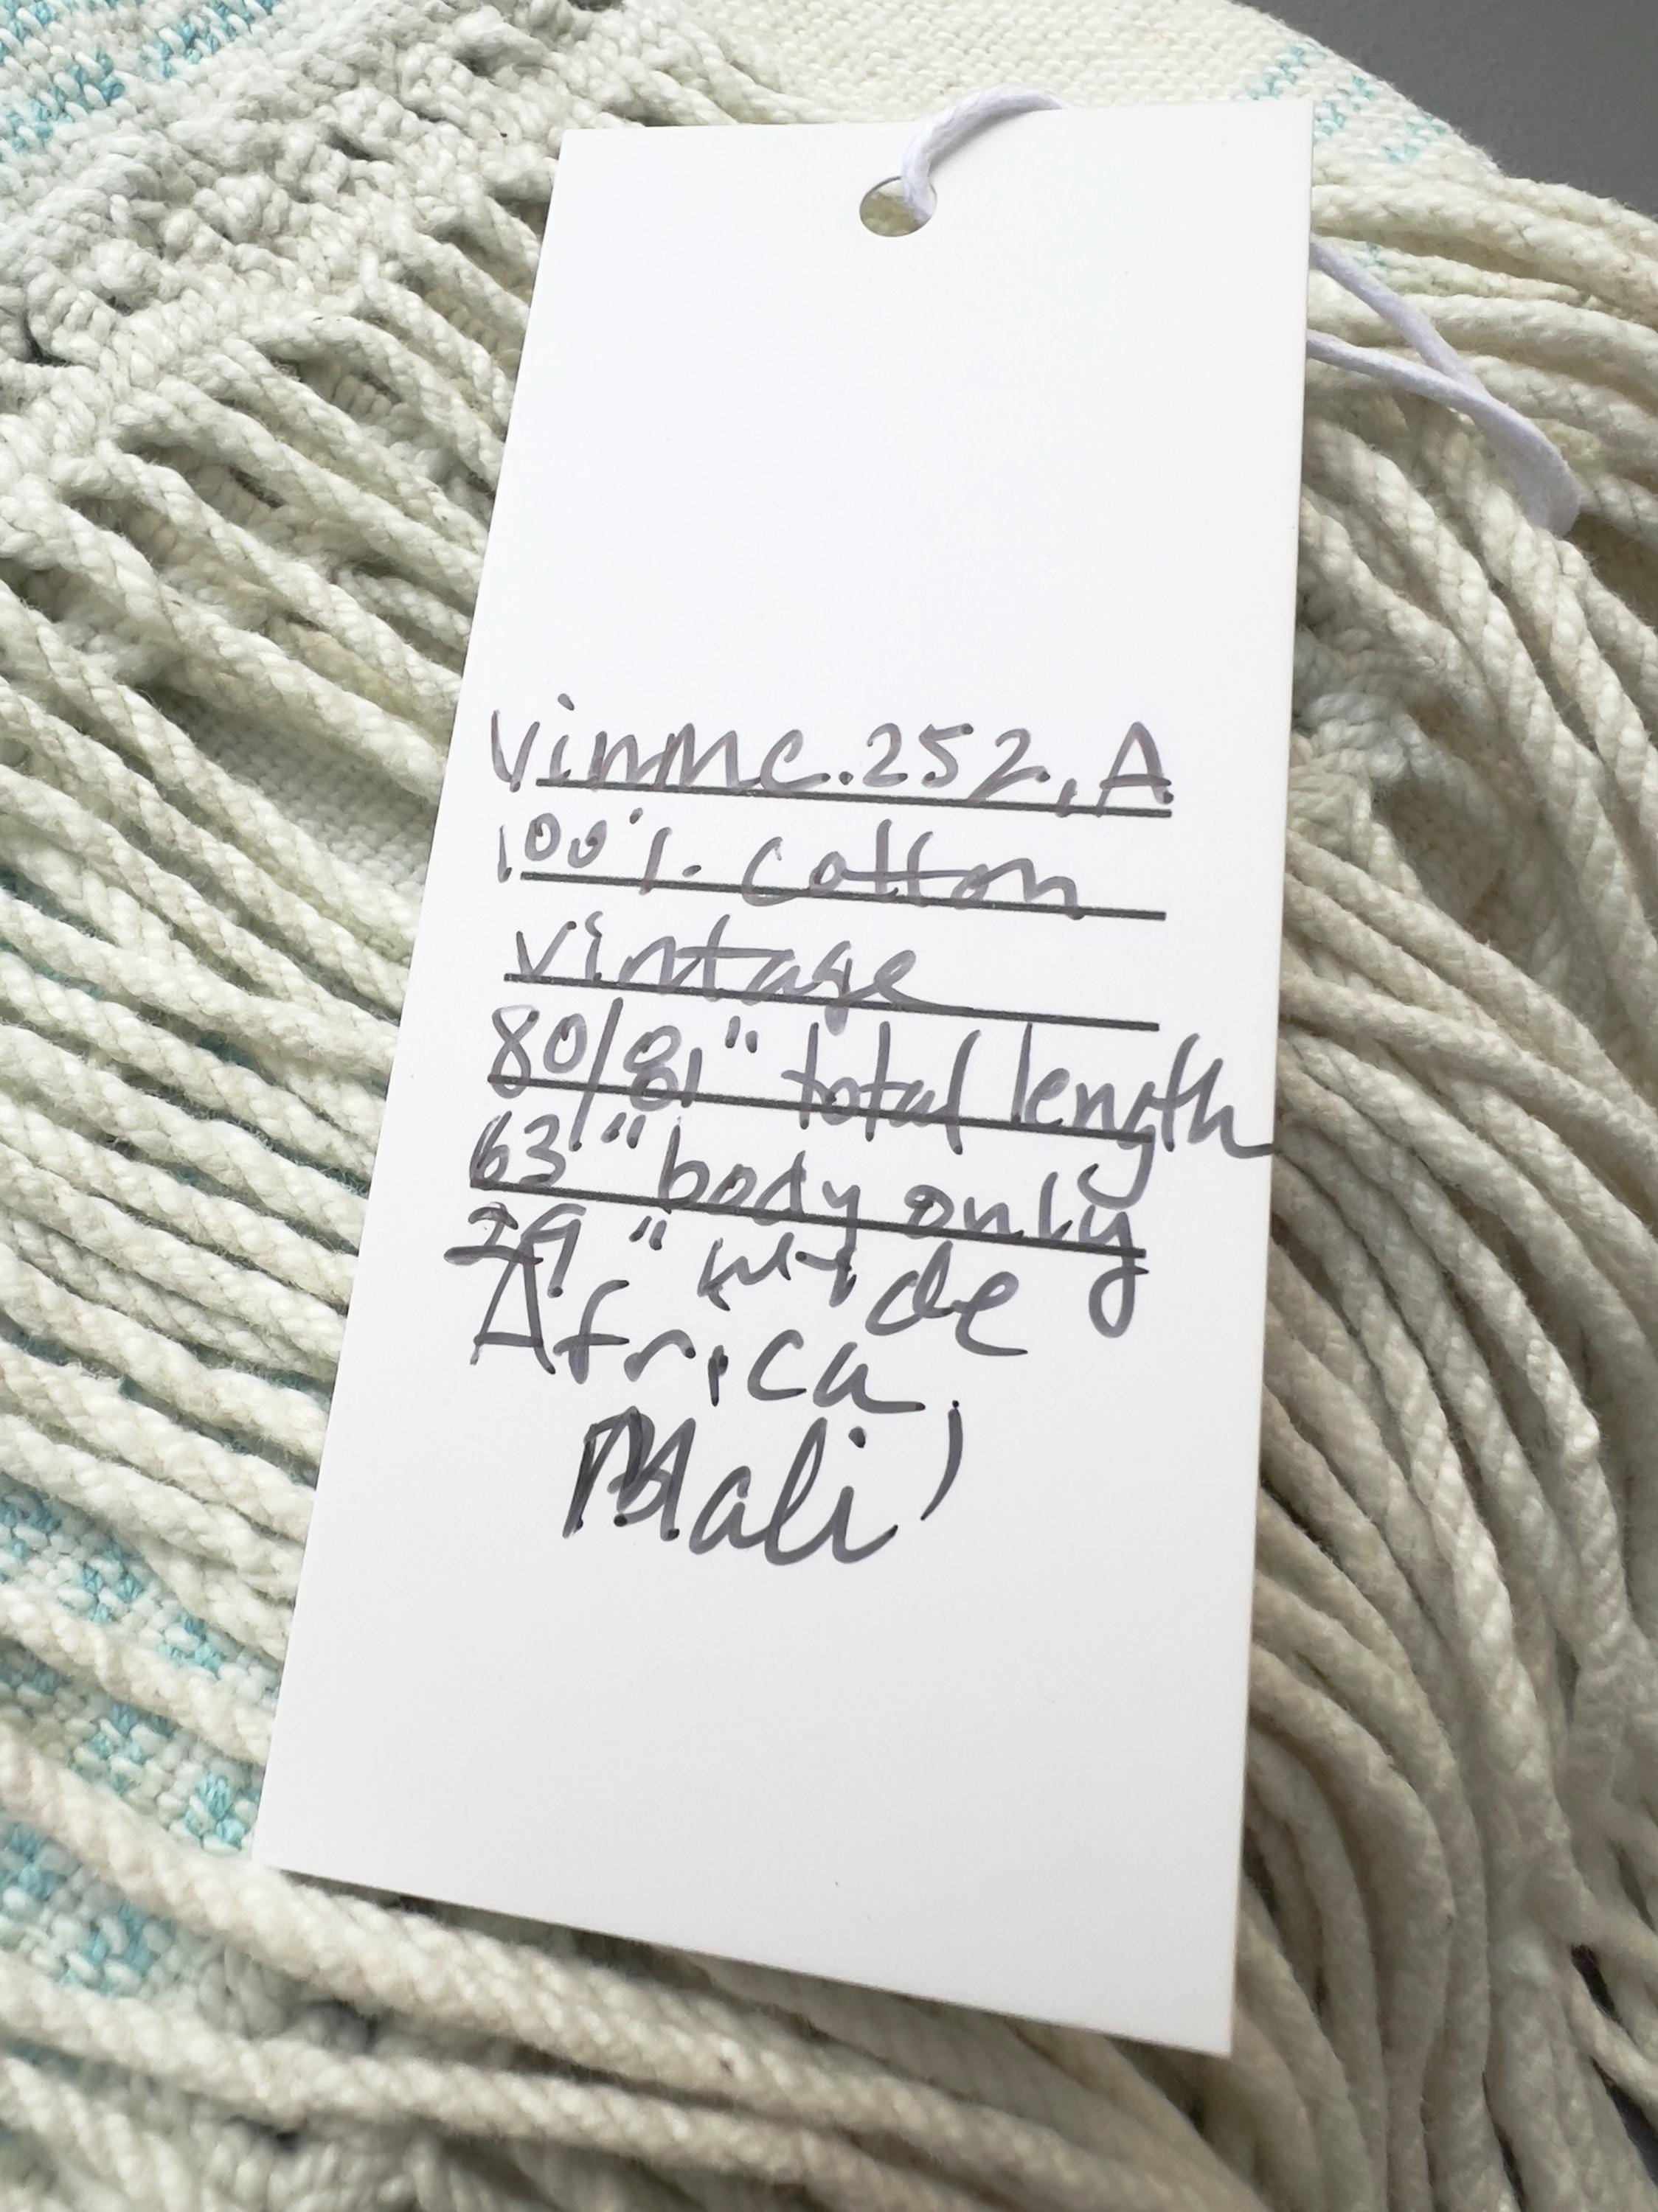 Vinmc.252.A
100% cotton
vintage
80/81" total length
63" body only
29" wide
Africa,
Mali)